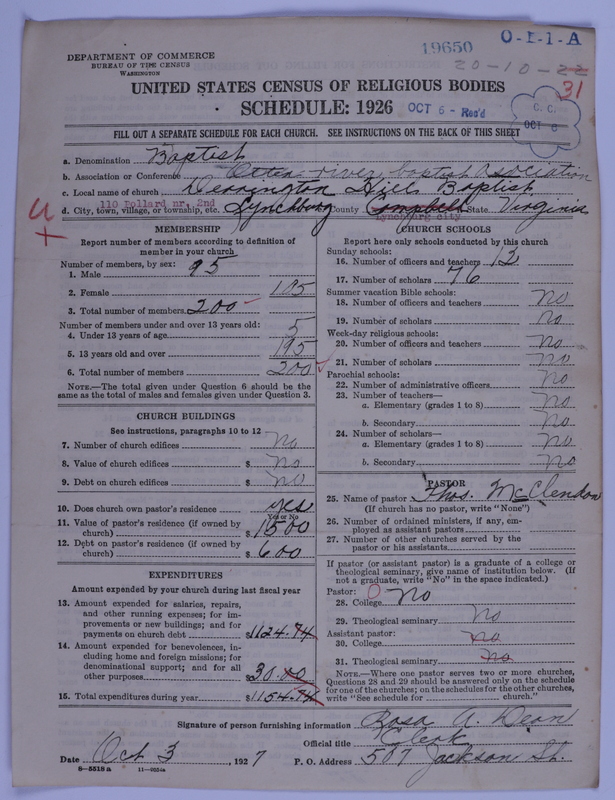 19650
O-1-1-A
20-10-22
31
DEPARTMENT OF COMMERCE
BUREAU OF THE CENSUS
WASHINGTON
UNITED STATES CENSUS OF RELIGIOUS BODIES
SCHEDULE: 1926
OCT 6 - Rec'd
C. C.
OCT 6
FILL OUT A SEPARATE SCHEDULE FOR EACH CHURCH. SEE INSTRUCTIONS ON THE BACK OF THIS SHEET
a. Denomination Baptist
b. Association or Conference Otter river baptist Association
c. Local name of church Derrington Hills Baptist
110 Pollard nr. 2nd
d. City, town, village, or township, etc. Lynchburg County Campbell State Virginia
Lynchburg city
MEMBERSHIP
Report number of members according to definition of
member in your church
Number of members, by sex:
1. Male 95
2. Female 105
3. Total number of members 200
Number of members under and over 13 years old:
4. Under 13 years of age 5
5. 13 years old and over 195
6. Total number of members 200
NOTE.—The total given under Question 6 should be the
same as the total of males and females given under Question 3.
CHURCH BUILDINGS
See instructions, paragraphs 10 to 12
7. Number of church edifices no
8. Value of church edifices $ No
9. Debt on church edifices $ No
10. Does church own pastor's residence yes
Yes or No
11. Value of pastor's residence (if owned by
church) $ 1500
12. Debt on pastor's residence (if owned by
church) $ 600
EXPENDITURES
Amount expended by your church during last fiscal year
13. Amount expended for salaries, repairs,
and other running expenses; for im-
provements or new buildings; and for
payments on church debt $1124.74
14. Amount expended for benevolences, in-
cluding home and foreign missions; for
denominational support; and for all
other purposes $ 30.00
15. Total expenditures during year $1154.74
CHURCH SCHOOLS
Report here only schools conducted by this church
Sunday schools:
16. Number of officers and teachers 12
17. Number of scholars 76
Summer vacation Bible schools:
18. Number of officers and teachers no
19. Number of scholars no
Week-day religious schools:
20. Number of officers and teachers No
21. Number of scholars No
Parochial schools:
22. Number of administrative officers No
23. Number of teachers—
a. Elementary (grades 1 to 8) No
b. Secondary No
24. Number of scholars—
a. Elementary (grades 1 to 8) No
b. Secondary No
PASTOR
25. Name of pastor Thos. McClendon
(If church has no pastor, write "None")
26. Number of ordained ministers, if any, em-
ployed as assistant pastors
27. Number of other churches served by the
pastor or his assistants
If pastor (or assistant pastor) is a graduate of a college or
theological seminary, give name of institution below. (If
not a graduate, write "No" in the space indicated.)
Pastor: O
28. College No
29. Theological seminary No
Assistant pastor:
30. College no
31. Theological seminary No
NOTE.—Where one pastor serves two or more churches,
Questions 28 and 29 should be answered only on the schedule
for one of the churches; on the schedules for the other churches,
write "See schedule for church."
Signature of person furnishing information Rosa A. Dean
Official title Clerk
Date Oct 3, 1927 P. O. Address 507 Jackson St.
8-5518a 11-9554a